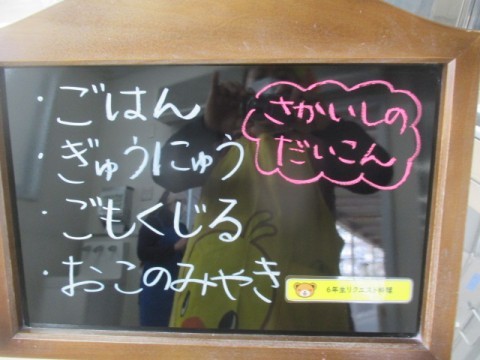 ・ごはん
・ぎゅうにゅう
・ごもくじる
・おこのみやき
さかいしの
だいこん
6年生リクエスト献立